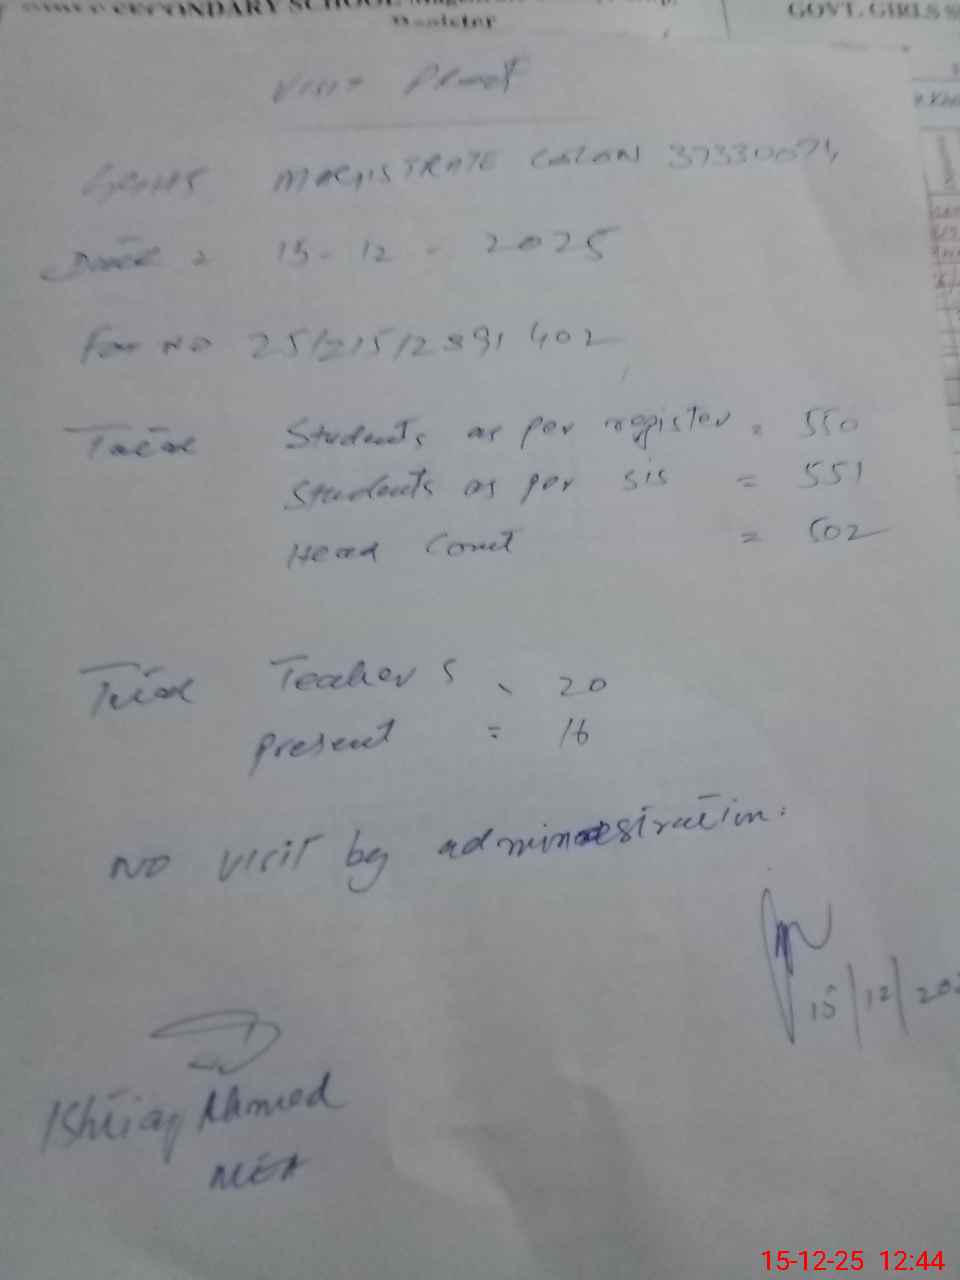 SECONDARY SCHOOL
Register
GOVT. GIRLS
Visit Proof
GGHSS MAGISTRATE COLONY 37330074
Date : 15-12-2025
For No 25121512891402
Total Students as per register = 550
Students as per sis = 551
Head Count = 502
Total Teachers 20
present = 16
NO visit by administration.
15/12/202
Ishtiaq Ahmed
MEA
15-12-25 12:44